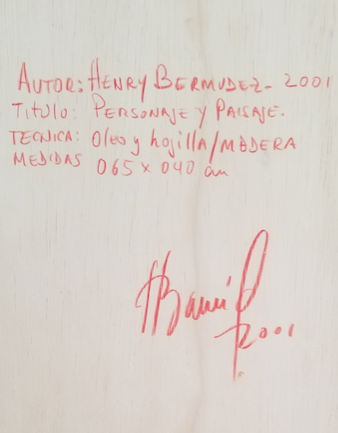 AUTOR: HENRY BERMUDEZ - 2001
TITULO: PERSONAJE Y PAISAJE.
TECNICA: Oleo y hojilla/MADERA
MEDIDAS 065 x 040 cm
2001